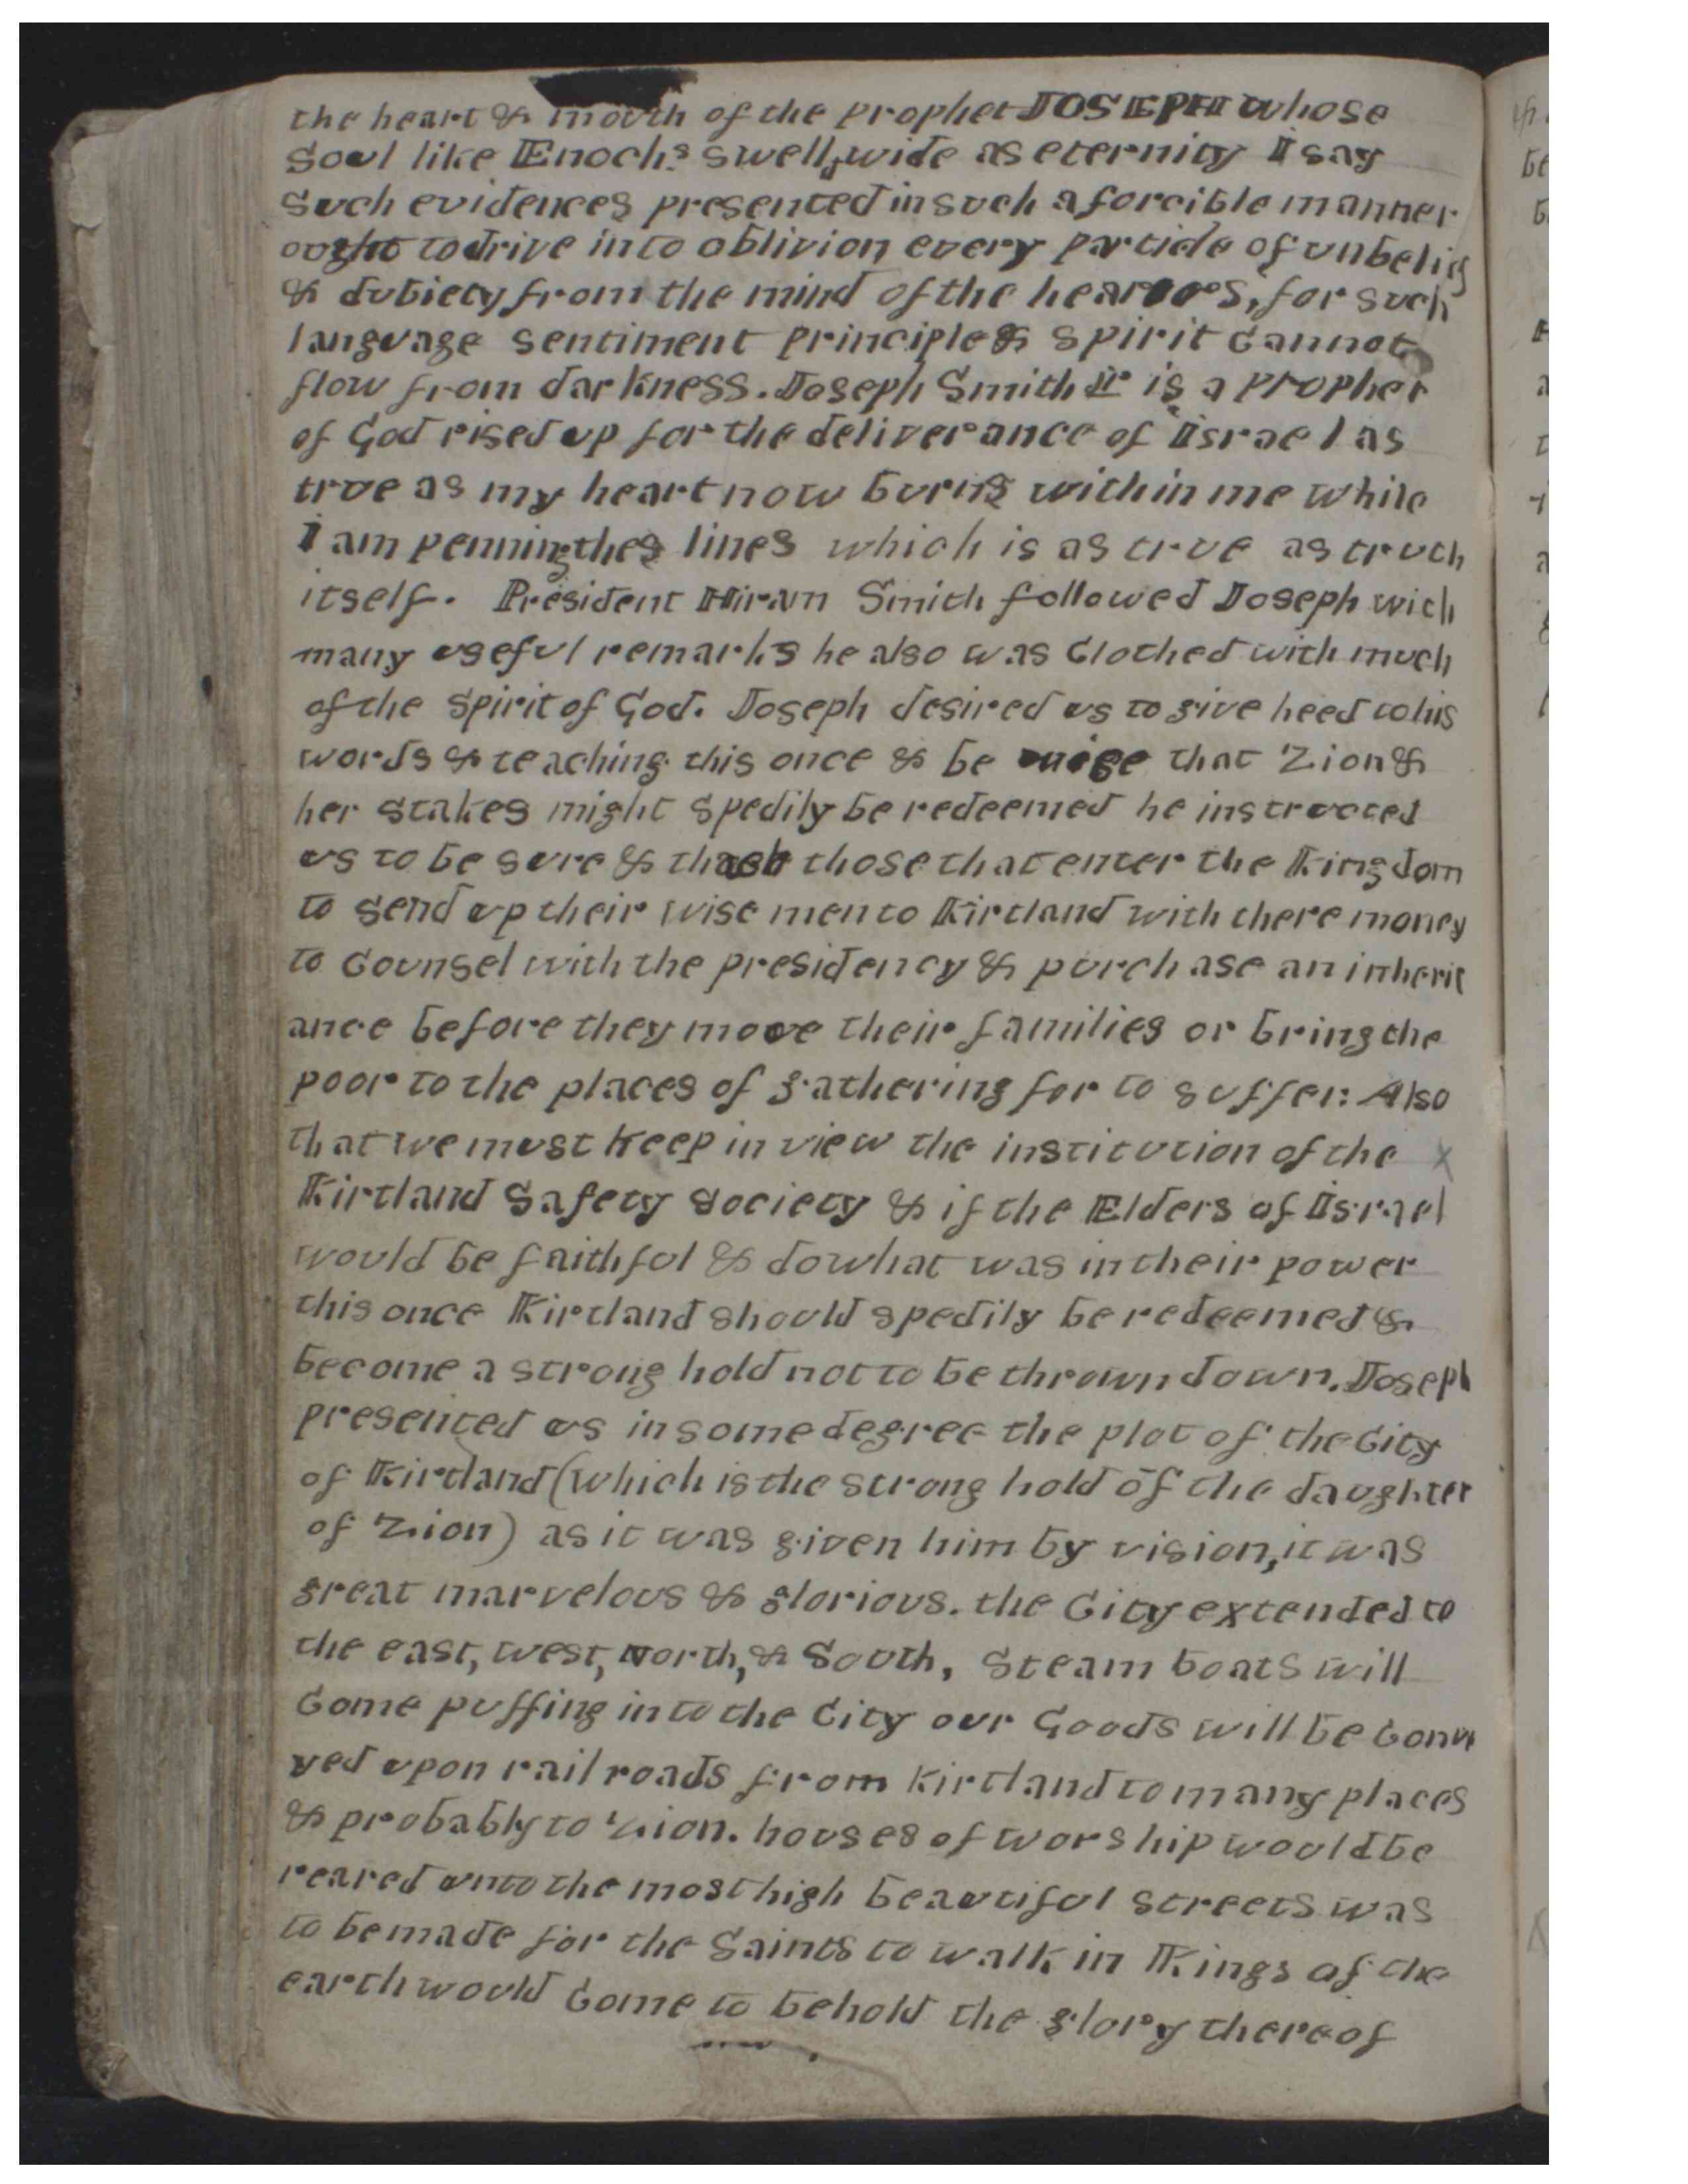 the heart & mouth of the prophet JOSEPH whose
Soul like Enoch.s swells wide as eternity I say
Such evidences presented in such a forcible manner
ought to drive into oblivion every particle of unbelief
& dubiety from the mind of the hearers, for such
language sentiment principle & spirit cannot
flow from darkness. Joseph Smith Jr is a prophet
of God rised up for the deliverance of Israel as
true as my heart now burns within me while
I am penning thes lines which is as true as truth
itself. President Hiram Smith followed Joseph with
many useful remarks he also was Clothed with much
of the Spirit of God. Joseph desired us to give heed to his
words & teaching this once & be wise that Zion &
her Stakes might spedily be redeemed he instructed
us to be sure & those that enter the Kingdom
to send up their wise men to Kirtland with there money
to Counsel with the presidency & purchase an inherit
ance before they move their families or bring the
poor to the places of gathering for to suffer: Also
that we must keep in view the institution of the X
Kirtland Safety Society & if the Elders of Israel
would be faithful & do what was in their power
this once Kirtland should spedily be redeemed &
become a strong hold not to be thrown down. Joseph
presented us in some degree the plot of the City
of Kirtland (which is the strong hold of the daughter
of Zion) as it was given him by vision, it was
great marvelous & glorious. the City extended to
the east, west, North, & South, Steam boats will
Come puffing into the City our Goods will be conv
yed upon railroads from Kirtland to many places
& probably to Zion. houses of worship would be
reared unto the most high beautiful streets was
to be made for the Saints to walk in Kings of the
earth would Come to behold the glory thereof